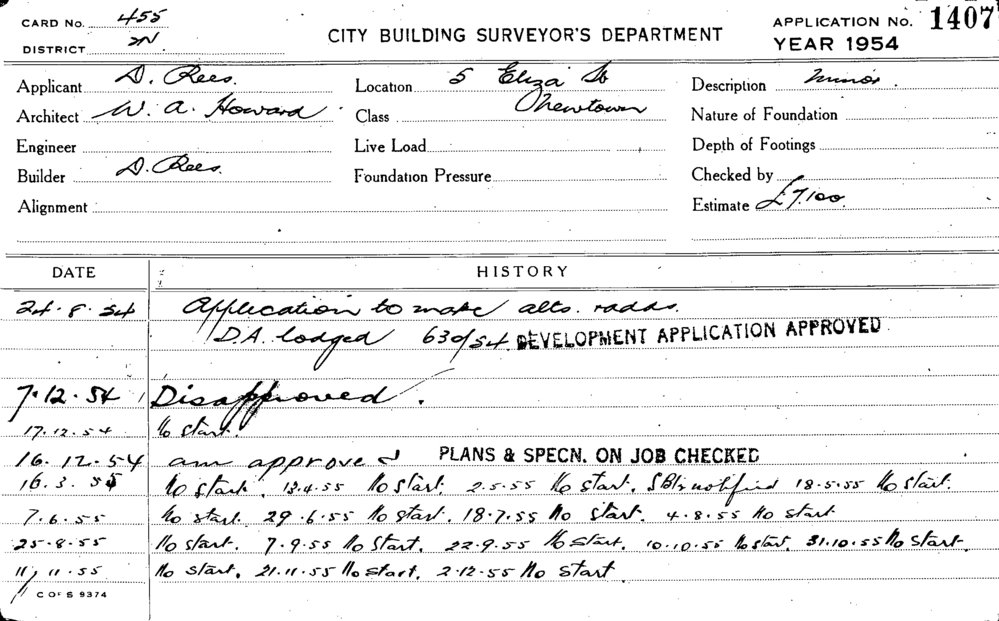 CARD No. 455
DISTRICT 2N
CITY BUILDING SURVEYOR'S DEPARTMENT
APPLICATION No. 1407
YEAR 1954
Applicant D. Rees.
Location 5 Eliza St
Description Minor
Architect W. A. Howard
Newtown
Class
Nature of Foundation
Engineer
Live Load
Depth of Footings
Builder D. Rees.
Foundation Pressure
Checked by
Alignment
Estimate £7,100
DATE HISTORY
24.8.54 Application to make alts. &adds.
D.A. lodged 630/54. DEVELOPMENT APPLICATION APPROVED
7.12.54 Disapproved.
17.12.54 No start.
16.12.54 am approved PLANS & SPECN. ON JOB CHECKED
16.3.55 No start. 13.4.55 No start. 2.5.55 No start. notified 18.5.55 No start.
7.6.55 No start. 29.6.55 No start. 18.7.55 No start. 4.8.55 No start
25.8.55 No start. 7.9.55 No start. 22.9.55 No start. 10.10.55 No start. 31.10.55 No start.
11.11.55 No start. 21.11.55 No start. 2.12.55 No start
C OF S 9374